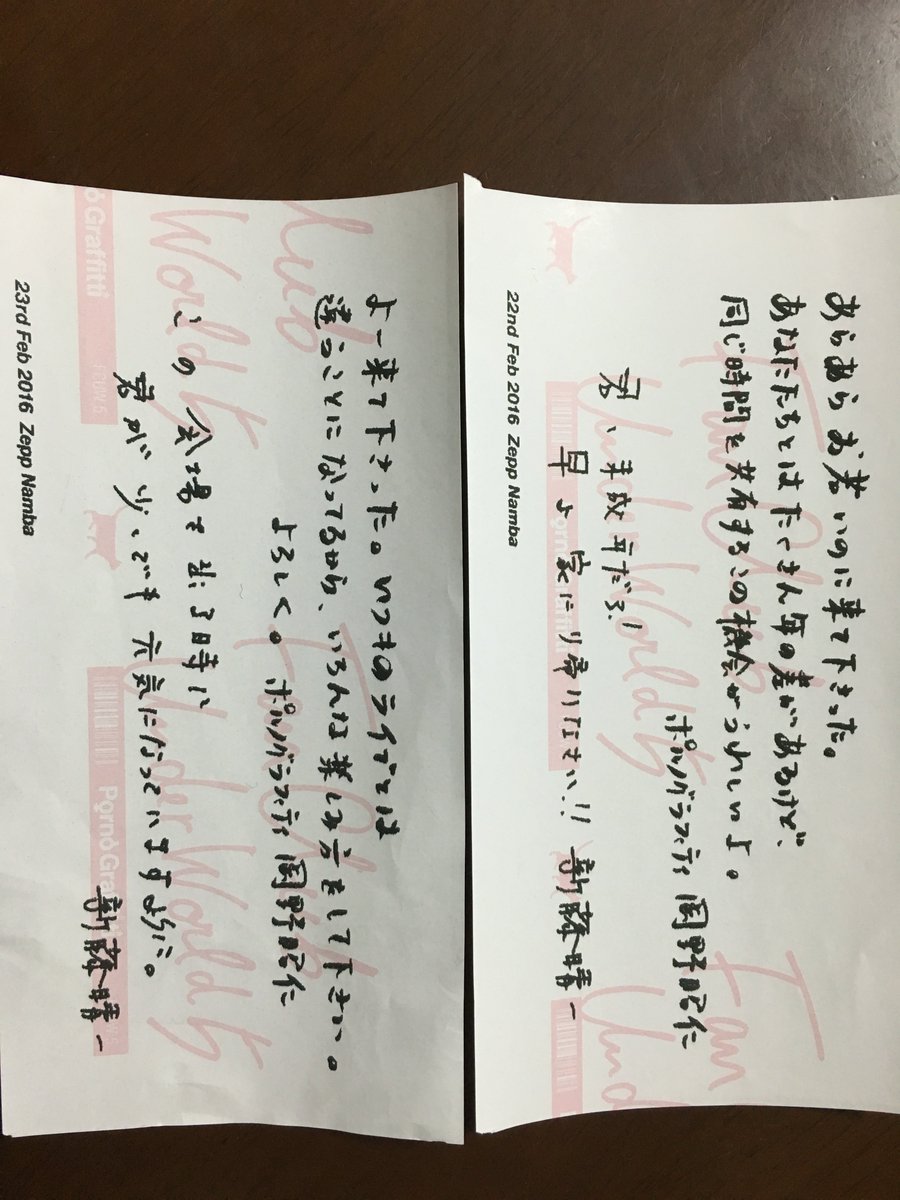 あらあらお若いのに来て下さった。
あなたたちとはたくさん年の差があるけど、
同じ時間を共有するこの機会がうれしいよ。
ポルノグラフィティ 岡野昭仁
君、平成千だろ!
早よ家に帰りなさい!! 新藤晴一
22nd Feb 2016 Zepp Namba
よー来て下さった。いつものライブとは
違うことになってるから、いろんな楽しみ方をして下さい。
よろしく。 ポルノグラフィティ 岡野昭仁
この会場を出る時に
君が少しでも元気になっていますように。
新藤晴一
23rd Feb 2016 Zepp Namba
FanClub
UnderWorld 5
Porno Graffitti